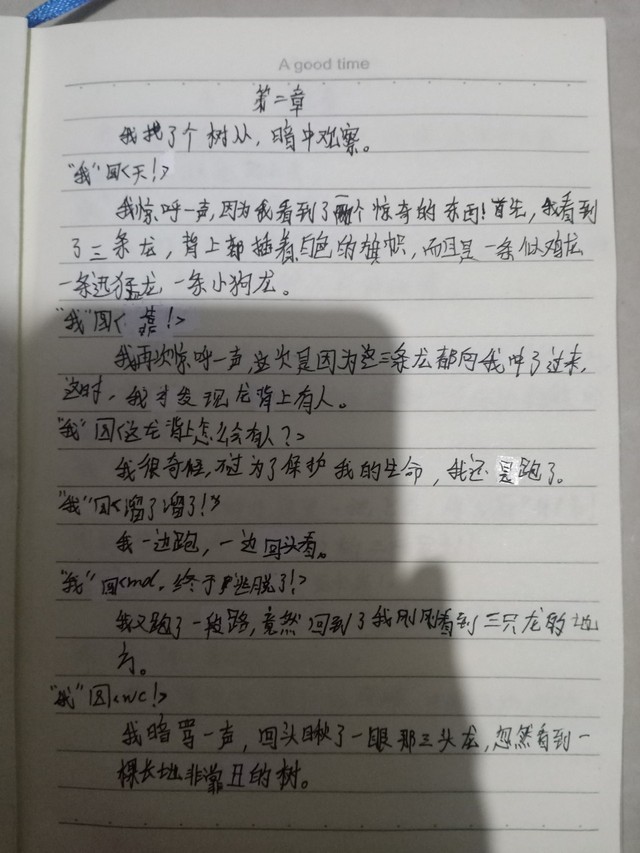 A good time
第二章
我找了个树丛，暗中观察。
"我"回<天！>
我惊呼一声，因为我看到了两个惊奇的东西！首先，我看到
了三条龙，背上都插着白色的旗帜，而且是一条似鸡龙
一条迅猛龙 一条小狗龙。
"我"回< 靠！>
我再次惊呼一声，这次是因为这三条龙都向我冲了过来，
这时，我才发现龙背上有人。
"我"回<这龙背上怎么会有人？>
我很奇怪，不过为了保护我的生命，我还是跑了。
"我"回<溜了溜了！>
我一边跑，一边回头看。
"我"回<md，终于逃脱了！>
我又跑了一段路，竟然回到了我刚刚看到三只龙的地
方。
"我"回<wc！>
我暗骂一声，回头瞅了一眼那三头龙，忽然看到一
棵长地非常丑的树。